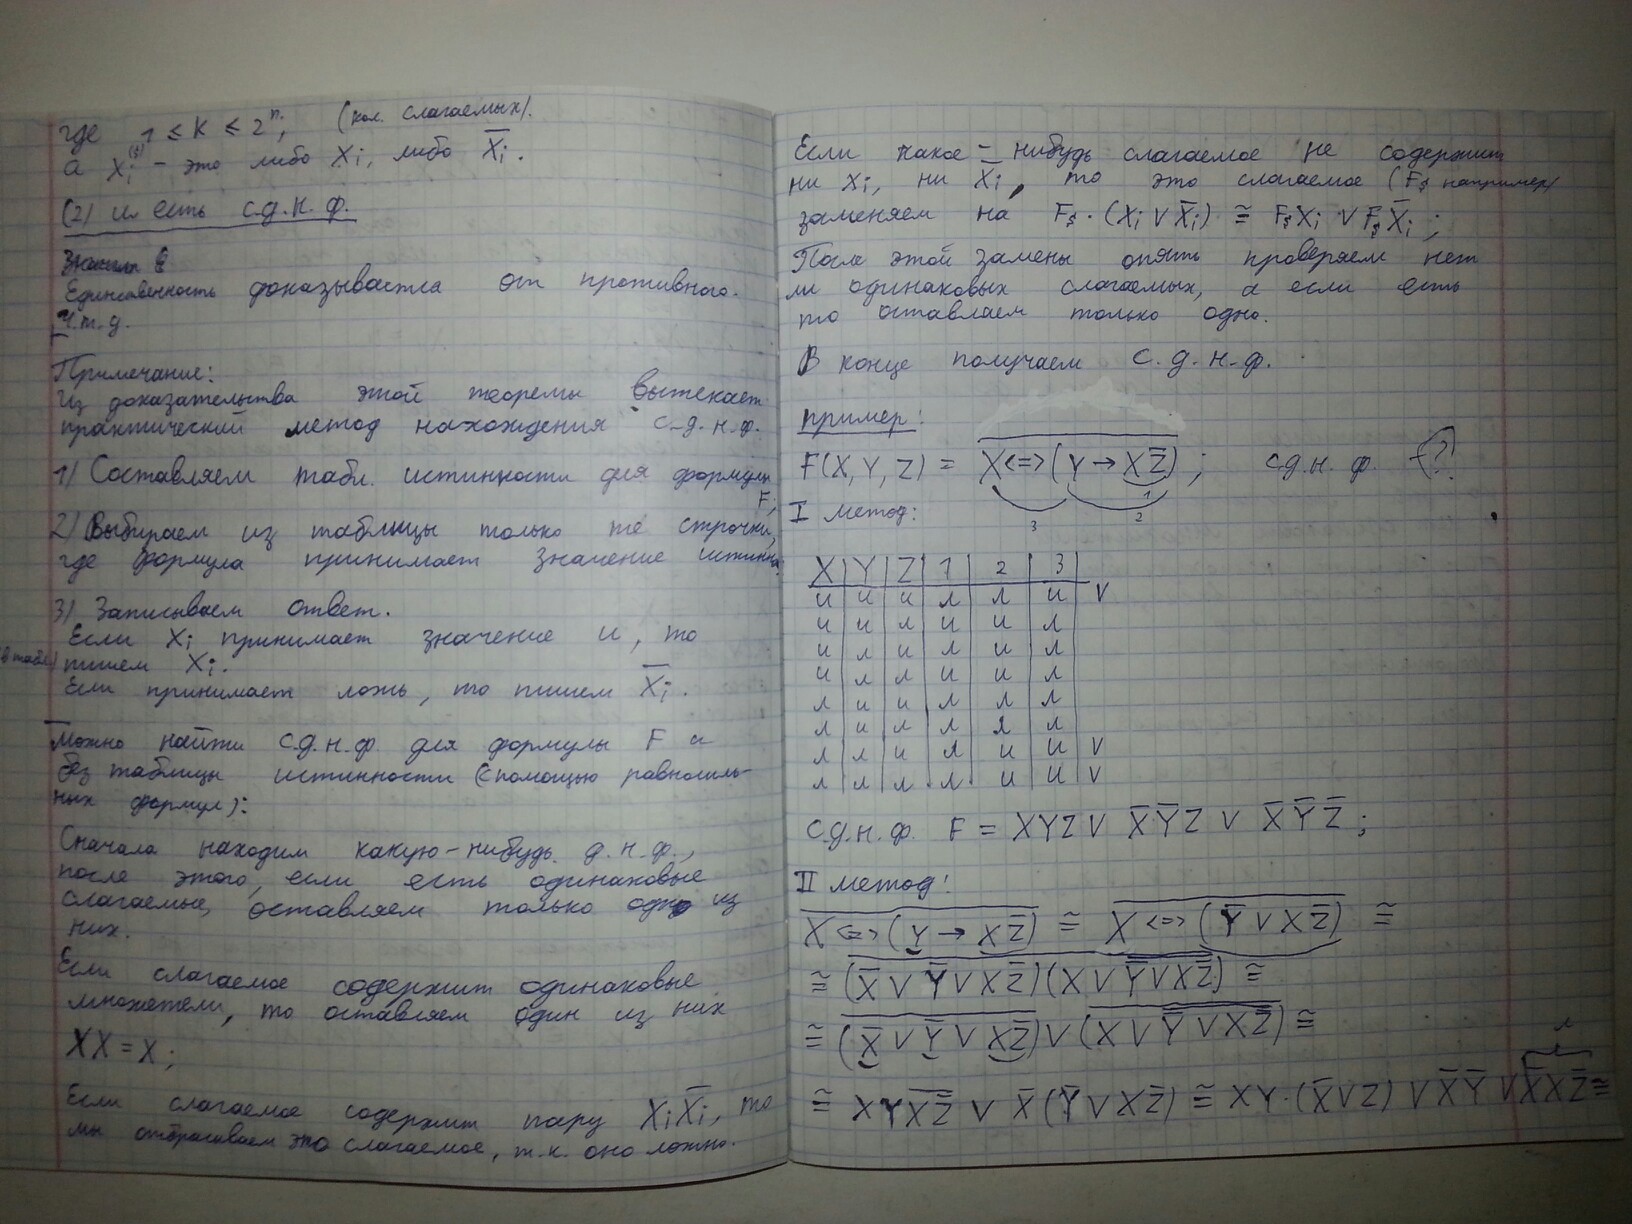 где 1 ≤ K ≤ 2ⁿ; (кол. слагаемых).
а Xᵢ⁽ˢ⁾ – это либо Xᵢ, либо X̅ᵢ.
(2) и есть с.д.н.ф.
Единственность доказывается от противного.
Ч.т.д.
Примечание:
Из доказательства этой теоремы вытекает
практический метод нахождения с.д.н.ф.
1) Составляем табл. истинности для формулы
F;
2) Выбираем из таблицы только те строчки,
где формула принимает значение истина.
3) Записываем ответ.
Если Xᵢ принимает значение и, то
(в табл.) пишем Xᵢ.
Если принимает ложь, то пишем X̅ᵢ.
Можно найти с.д.н.ф. для формулы F и
без таблицы истинности (с помощью равносиль-
ных формул):
Сначала находим какую-нибудь д.н.ф.,
после этого, если есть одинаковые
слагаемые, оставляем только одно из
них.
Если слагаемое содержит одинаковые
множетели, то оставляем один из них
XX = X;
Если слагаемое содержит пару XᵢX̅ᵢ, то
мы отбрасываем это слагаемое, т.к. оно ложно.
Если какое-нибудь слагаемое не содержит
ни Xᵢ, ни X̅ᵢ, то это слагаемое (Fₛ например)
заменяем на Fₛ·(Xᵢ V X̅ᵢ) ≅ FₛXᵢ V FₛX̅ᵢ;
После этой замены опять проверяем нет
ли одинаковых слагаемых, а если есть
то оставляем только одно.
В конце получаем с.д.н.ф.
пример:
F(X, Y, Z) = \overline{X <=> (Y → XZ̅)}; с.д.н.ф. - (?)
1
3 2
I метод:
X Y Z 1 2 3
и и и л л и V
и и л и и л
и л и л и л
и л л и и л
л и и л л л
л и л л л л
л л и л и и V
л л л л и и V
с.д.н.ф. F = XYZ V X̅Y̅Z V X̅Y̅Z̅;
II метод:
\overline{X <=> (Y → XZ̅)} ≅ \overline{X <=> (Y̅ V XZ̅)} ≅
≅ \overline{(X̅ V Y̅ V XZ̅)(X V \overline{Y̅ V XZ̅})} ≅
≅ \overline{(X̅ V Y̅ V XZ̅)} V \overline{(X V \overline{Y̅ V XZ̅})} ≅
л
≅ XY\overline{XZ̅} V X̅(Y̅ V XZ̅) ≅ XY·(X̅ V Z) V X̅Y̅ V X̅XZ̅ ≅